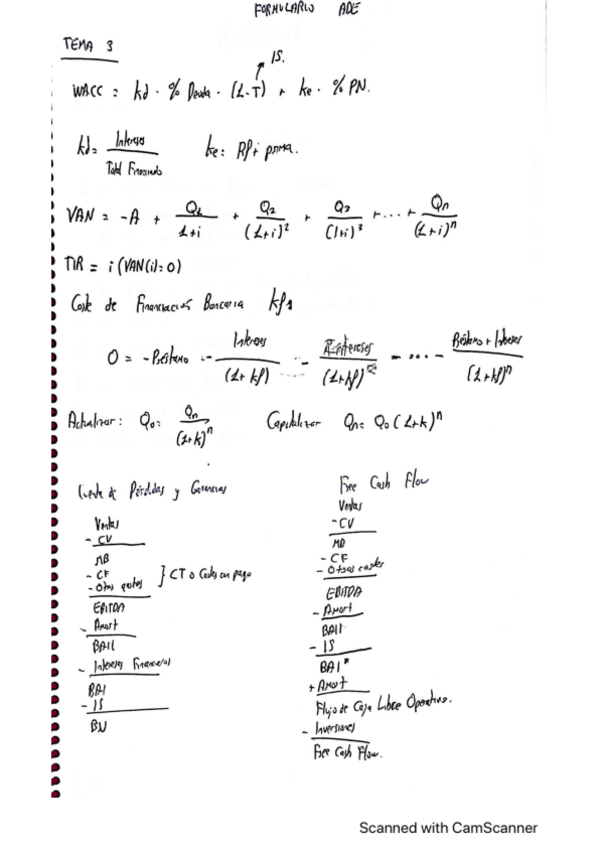 FORMULARIO ADE
TEMA 3
IS.
WACC = kd · % Deuda · (1-T) + ke · % PN.
kd = Intereses / Total Financiado
ke: Rf + prima.
VAN = -A + Q1 / 1+i + Q2 / (1+i)^2 + Q3 / (1+i)^3 + ... + Qn / (1+i)^n
TIR = i (VAN(i)=0)
Coste de Financiación Bancaria kfs
0 = -Préstamo - Intereses / (1+kf) - Intereses / (1+kf)^2 - ... - Préstamo + Intereses / (1+kf)^n
Actualizar: Q0 = Qn / (1+k)^n
Capitalizar Qn = Q0 (1+k)^n
Cuenta de Pérdidas y Ganancias
Ventas
- CV
MB
- CF
- Otros gastos } CT o Costes con pago
EBITDA
- Amort
BAII
- Intereses Financieros
BAI
- IS
BN
Free Cash Flow
Ventas
- CV
MB
- CF
- Otros costes
EBITDA
- Amort
BAII
- IS
BAI*
+ Amort
Flujo de Caja Libre Operativo.
- Inversiones
Free Cash Flow.
Scanned with CamScanner